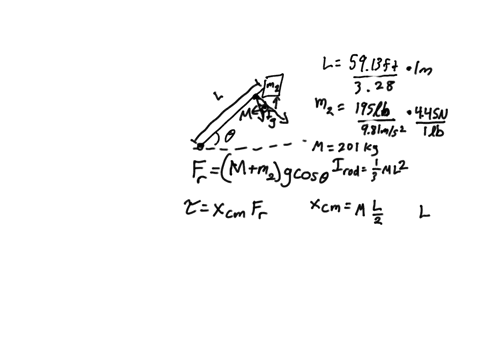 L = 59.13ft/3.28 • 1m
m₂ = 195lb/9.81m/s² • 4.45N/1lb
M = 201 kg
L
m₂
M
g
θ
F_r = (M+m₂)gcosθ I_rod = 1/3 ML²
τ = x_cm F_r x_cm = M L/2 L